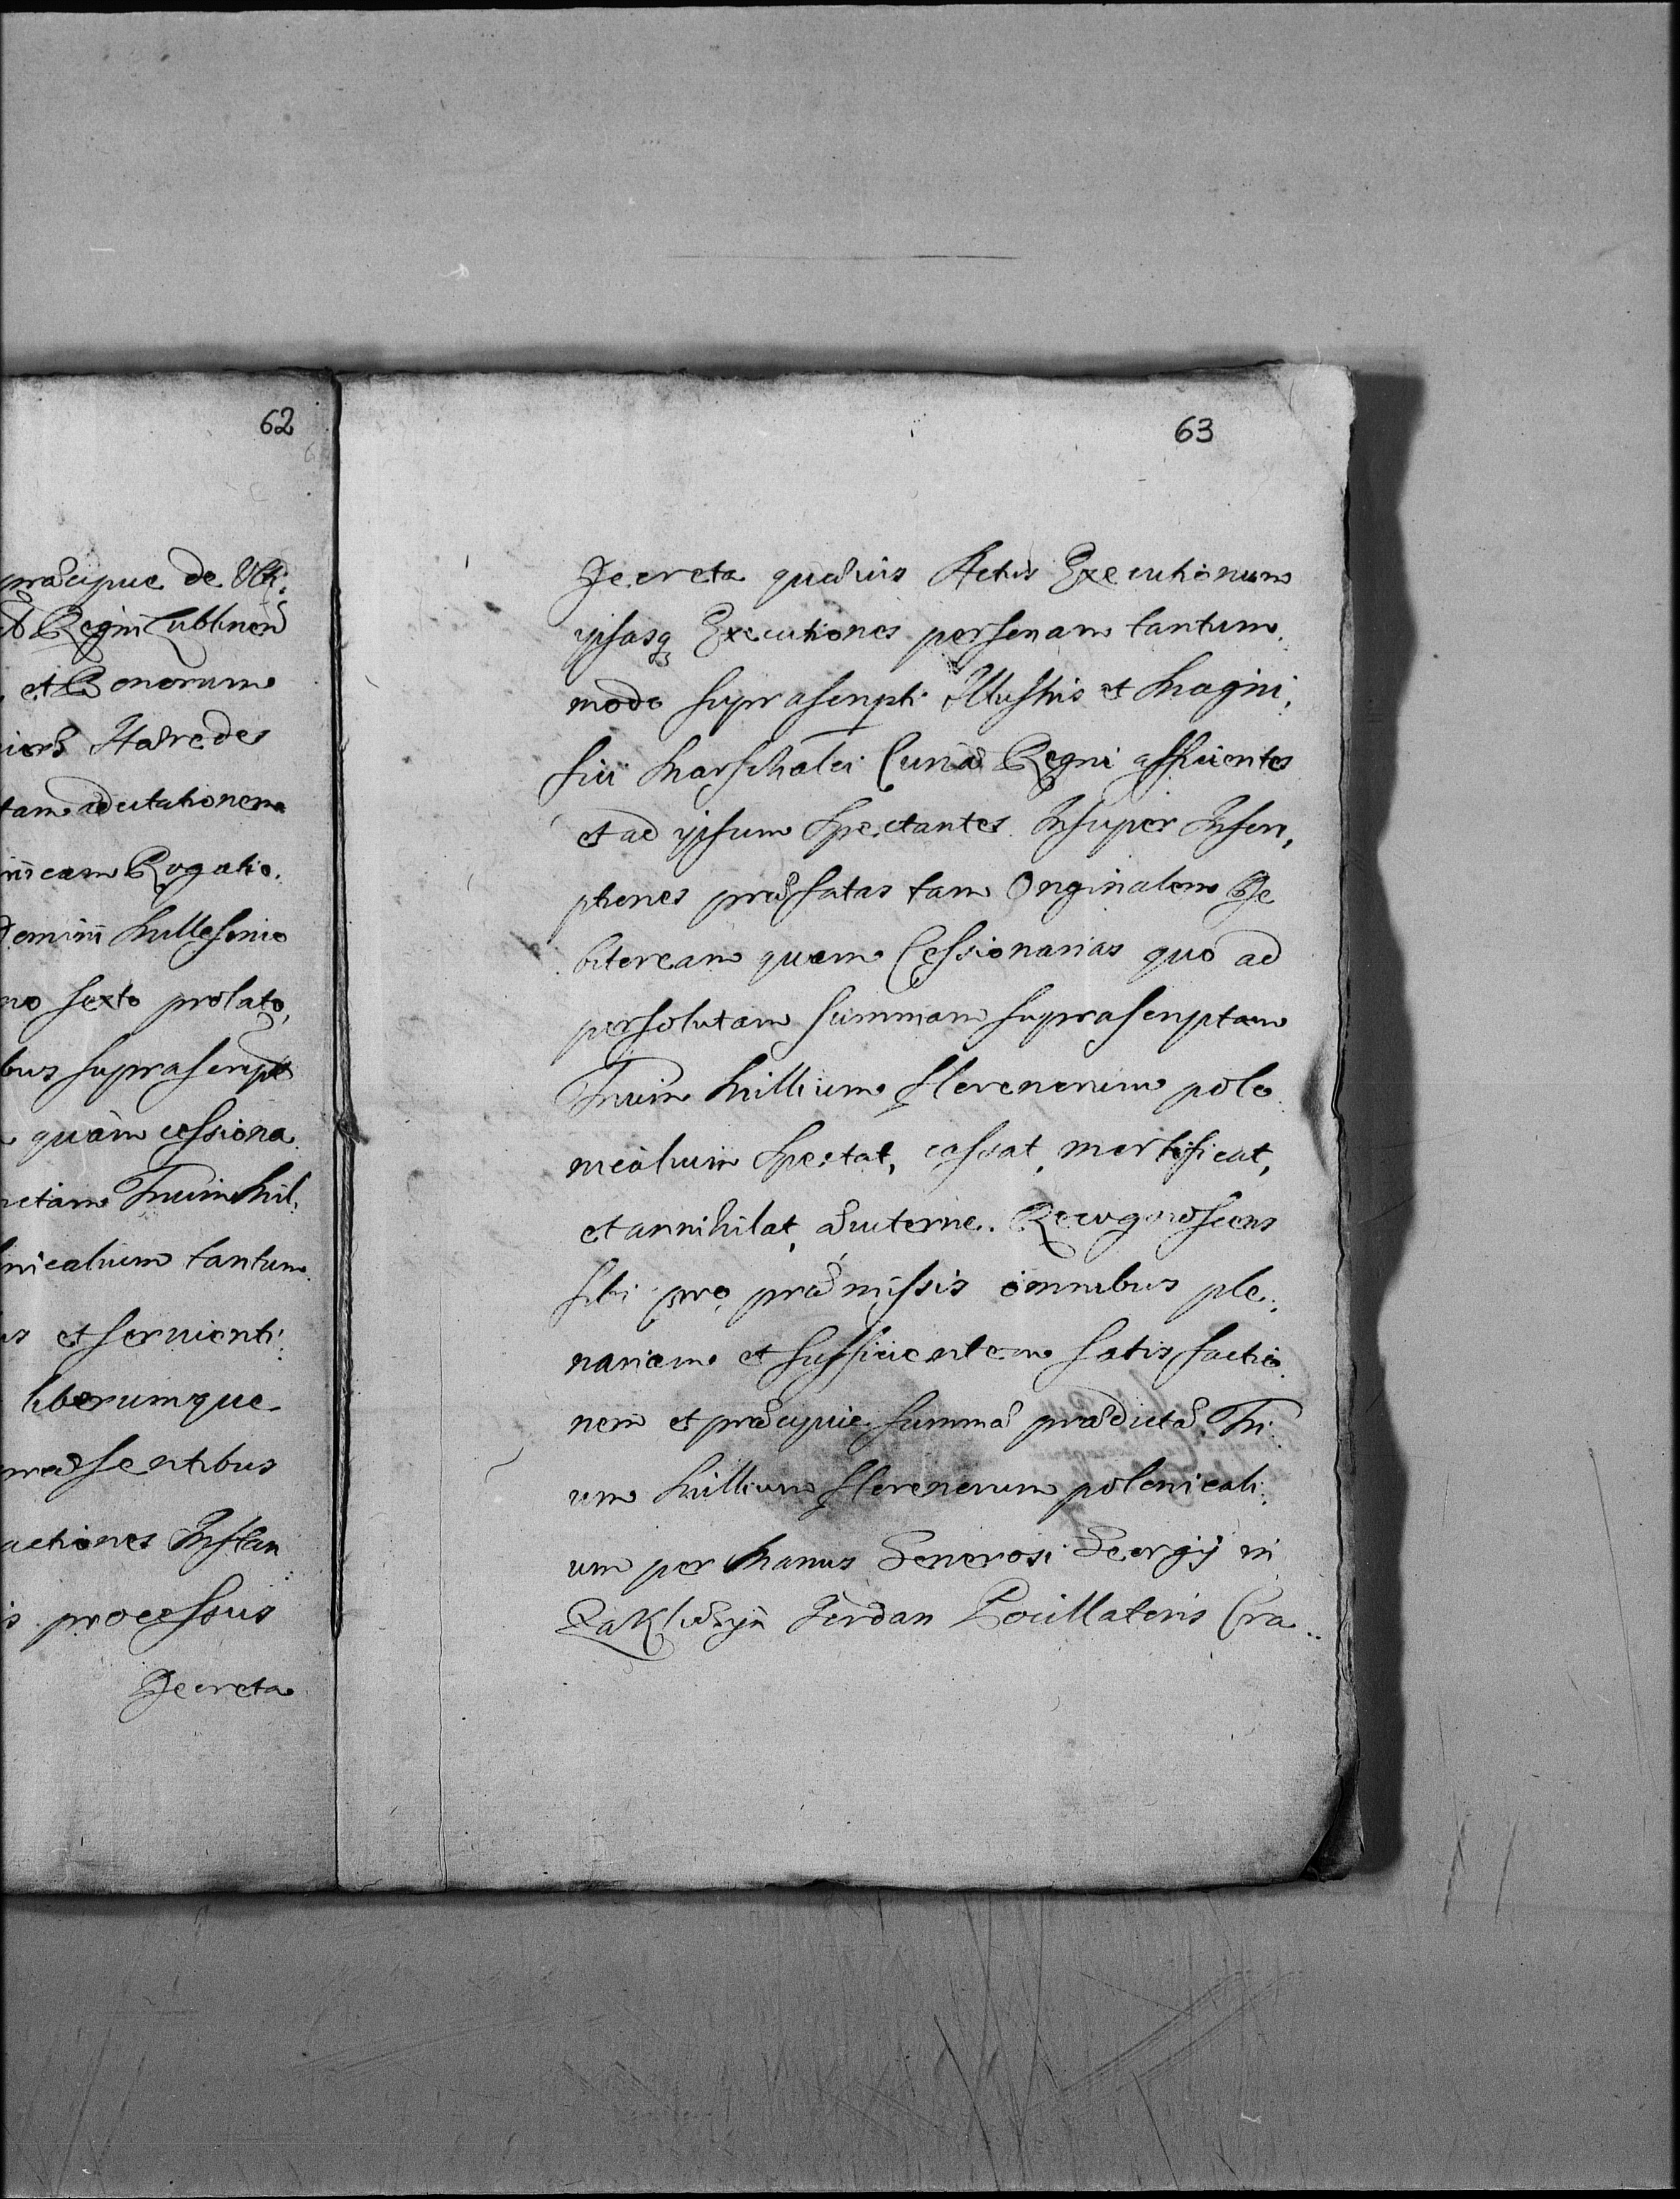 62
præcipue de Ulti:
Regni Lublinen
et Bonorum
Hæredes
tam ad citationem
eam Rogatio.
Domini Millesimo
mo sexto prolato,
bus suprascript
quàm cessiona
Trium Mil,
nicalium tantum
et servienti:
liberumque
præsentibus
actiones Instan
processus
Decreta
63
Decreta quævis Actus Executionum
ipsasq Executiones personam tantum
modo suprascripti Illustris et Magni,
fici Marschalci Curiæ Regni afficientes
et ad ipsum Spectantes. Insuper Inscri,
ptiones præfatas tam Originalem De
bitoream quam Cessionarias quo ad
persolutam summam suprascriptam
Trium Millium florenorum polo
nicalium Spectat, cassat, mortificat,
et annihilat, æviterne. Recognoscens
sibi pro præmissis omnibus ple:
nariam et sufficientem satisfactio
nem et præcipuè summæ prædictæ Tri
um Millium florenorum polonicali:
um per Manus Generosi Georgij in
Zakliczyn Jordan Pocillatoris Cra..